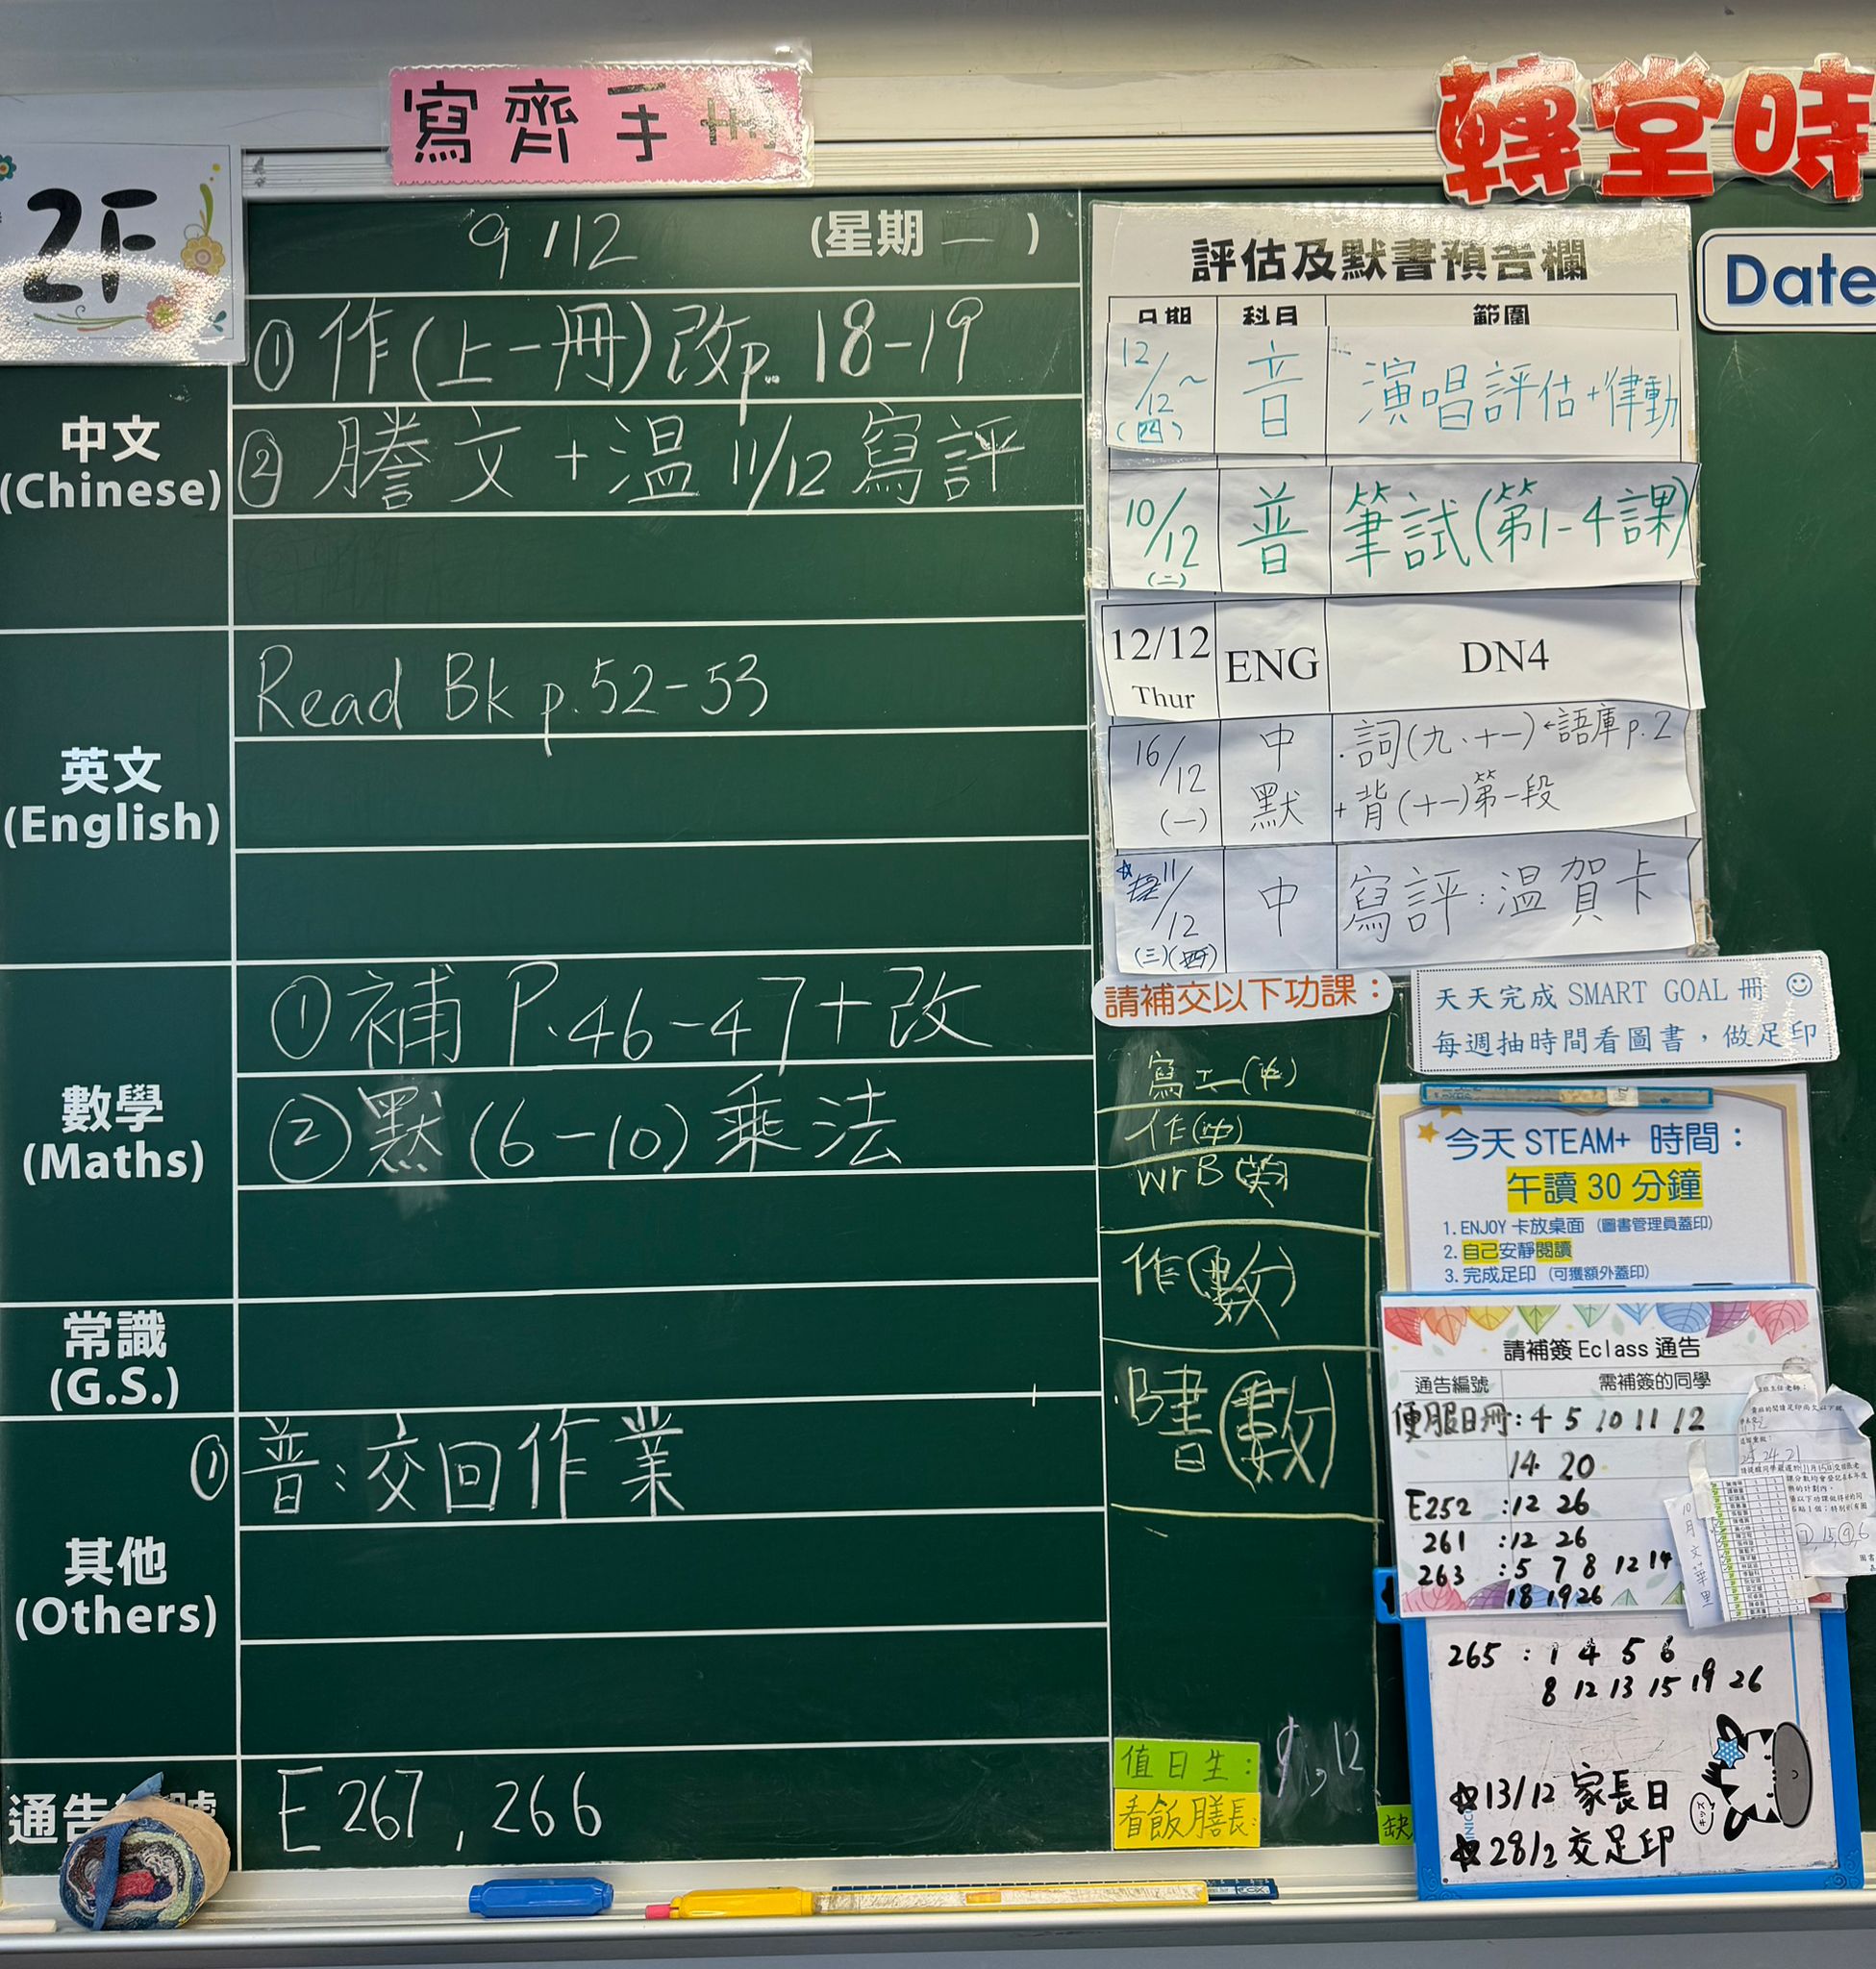 寫齊手冊
轉堂時
2F
9/12 (星期一)
Date
中文
(Chinese)
① 作(上一冊)改p. 18-19
② 謄文+温 11/12 寫評
英文
(English)
Read Bk p.52-53
數學
(Maths)
① 補 P.46-47+改
② 默(6-10)乘法
常識
(G.S.)
其他
(Others)
① 普:交回作業
通告
E267, 266
評估及默書預告欄
日期 科目 範圍
12/12~(四) 音 演唱評估+律動
10/12(二) 普 筆試(第1-4課)
12/12 Thur ENG DN4
16/12(一) 中默 ·詞(九、十一)←語庫p.2
+背(十一)第一段
11/12(三) 中 寫評:温賀卡
請補交以下功課:
作(中)
WrB(英)
作(數)
書(數)
值日生: 9, 12
看飯膳長:
缺
天天完成 SMART GOAL 冊
每週抽時間看圖書,做足印
今天 STEAM+ 時間:
午讀 30 分鐘
1. ENJOY 卡放桌面 (圖書管理員蓋印)
2. 自己安靜閱讀
3. 完成足印 (可獲額外蓋印)
請補簽 Eclass 通告
通告編號 需補簽的同學
便服日冊: 4 5 10 11 12
14 20
E252 :12 26
261 :12 26
263 :5 7 8 12 14
18 19 26
265 : 1 4 5 6
8 12 13 15 19 26
13/12 家長日
28/2 交足印